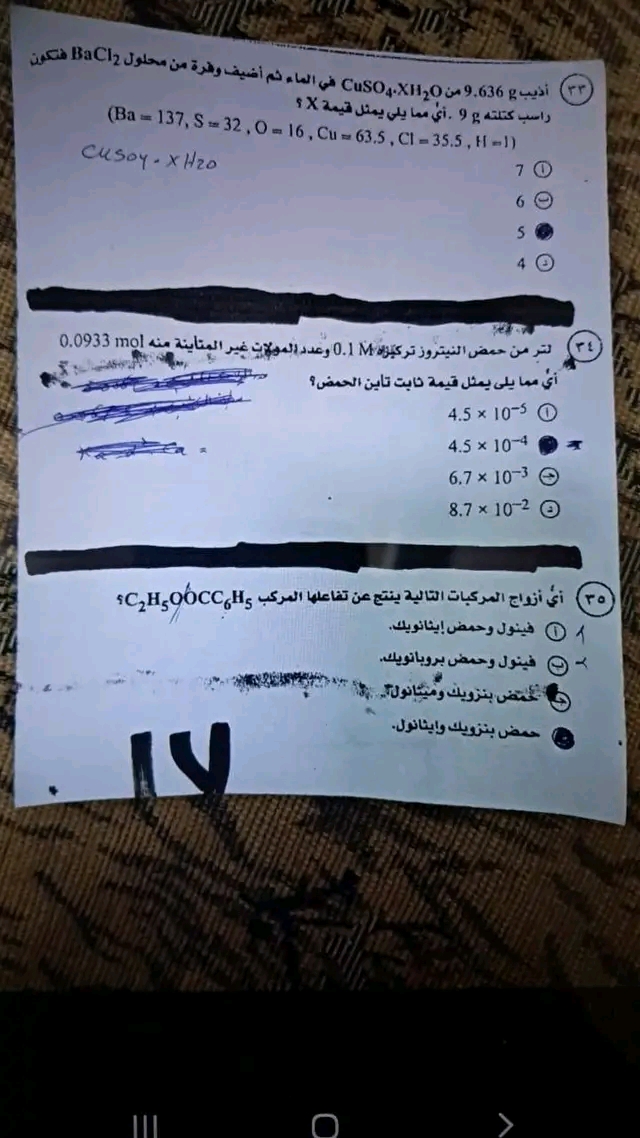 ٣٣ أذيب 9.636 g من CuSO₄.XH₂O في الماء ثم أضيف وفرة من محلول BaCl₂ فتكون
راسب كتلته 9 g . أي مما يلي يمثل قيمة X ؟
(Ba = 137, S = 32 , O = 16 , Cu = 63.5 , Cl = 35.5 , H =1)
CuSO4 . XH2O
أ 7
ب 6
5
د 4
٣٤ لتر من حمض النيتروز تركيزه 0.1 M وعدد المولات غير المتأينة منه 0.0933 mol
أي مما يلى يمثل قيمة ثابت تأين الحمض؟
أ 4.5 × 10⁻⁵
4.5 × 10⁻⁴
ج 6.7 × 10⁻³
د 8.7 × 10⁻²
٣٥ أي أزواج المركبات التالية ينتج عن تفاعلها المركب C₂H₅OOCC₆H₅؟
أ فينول وحمض إيثانويك.
ب فينول وحمض بروبانويك.
ج حمض بنزويك وميثانول.
حمض بنزويك وإيثانول.
١٧